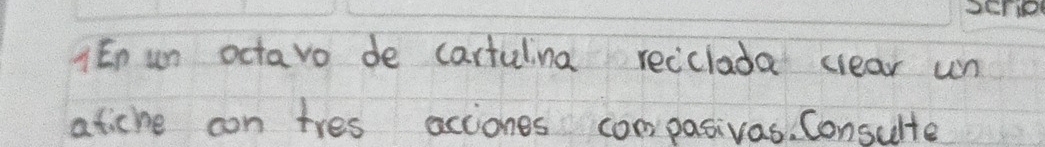 Scrib
1 En un octavo de cartulina reciclada crear un
afiche con tres acciones compasivas. Consulte